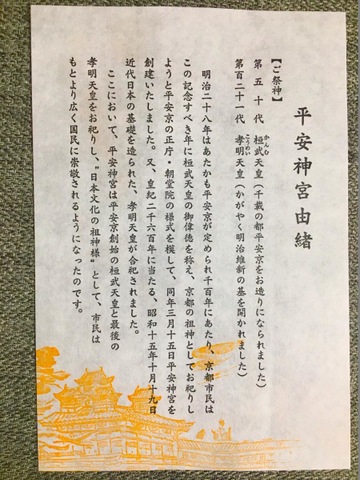 平安神宮由緒
【ご祭神】
第五十代 桓武天皇(千載の都平安京をお造りになられました)
かんむ
第百二十一代 孝明天皇(かがやく明治維新の基を開かれました)
こうめい
明治二十八年はあたかも平安京が定められ千百年にあたり、京都市民は
この記念すべき年に桓武天皇の御偉徳を称え、京都の祖神としてお祀りし
ようと平安京の正庁・朝堂院の様式を模して、同年三月十五日平安神宮を
創建いたしました。又、皇紀二千六百年に当たる、昭和十五年十月十九日
近代日本の基礎を造られた、孝明天皇が合祀されました。
ここにおいて、平安神宮は平安京創始の桓武天皇と最後の
孝明天皇をお祀りし、〝日本文化の祖神様〟として、市民は
もとより広く国民に崇敬されるようになったのです。